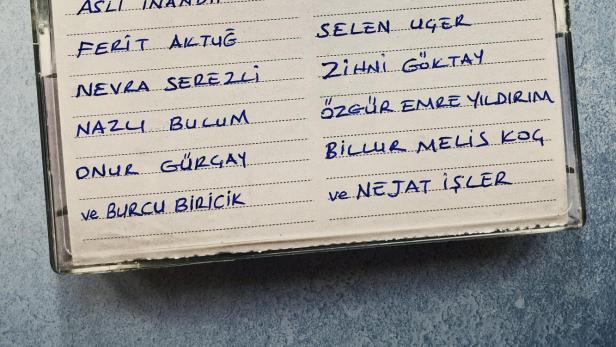 ASLI İNANDI
FERİT AKTUĞ
NEVRA SEREZLİ
NAZLI BULUM
ONUR GÜRÇAY
ve BURCU BİRİCİK
SELEN UÇER
ZİHNİ GÖKTAY
ÖZGÜR EMRE YILDIRIM
BİLLUR MELİS KOÇ
ve NEJAT İŞLER